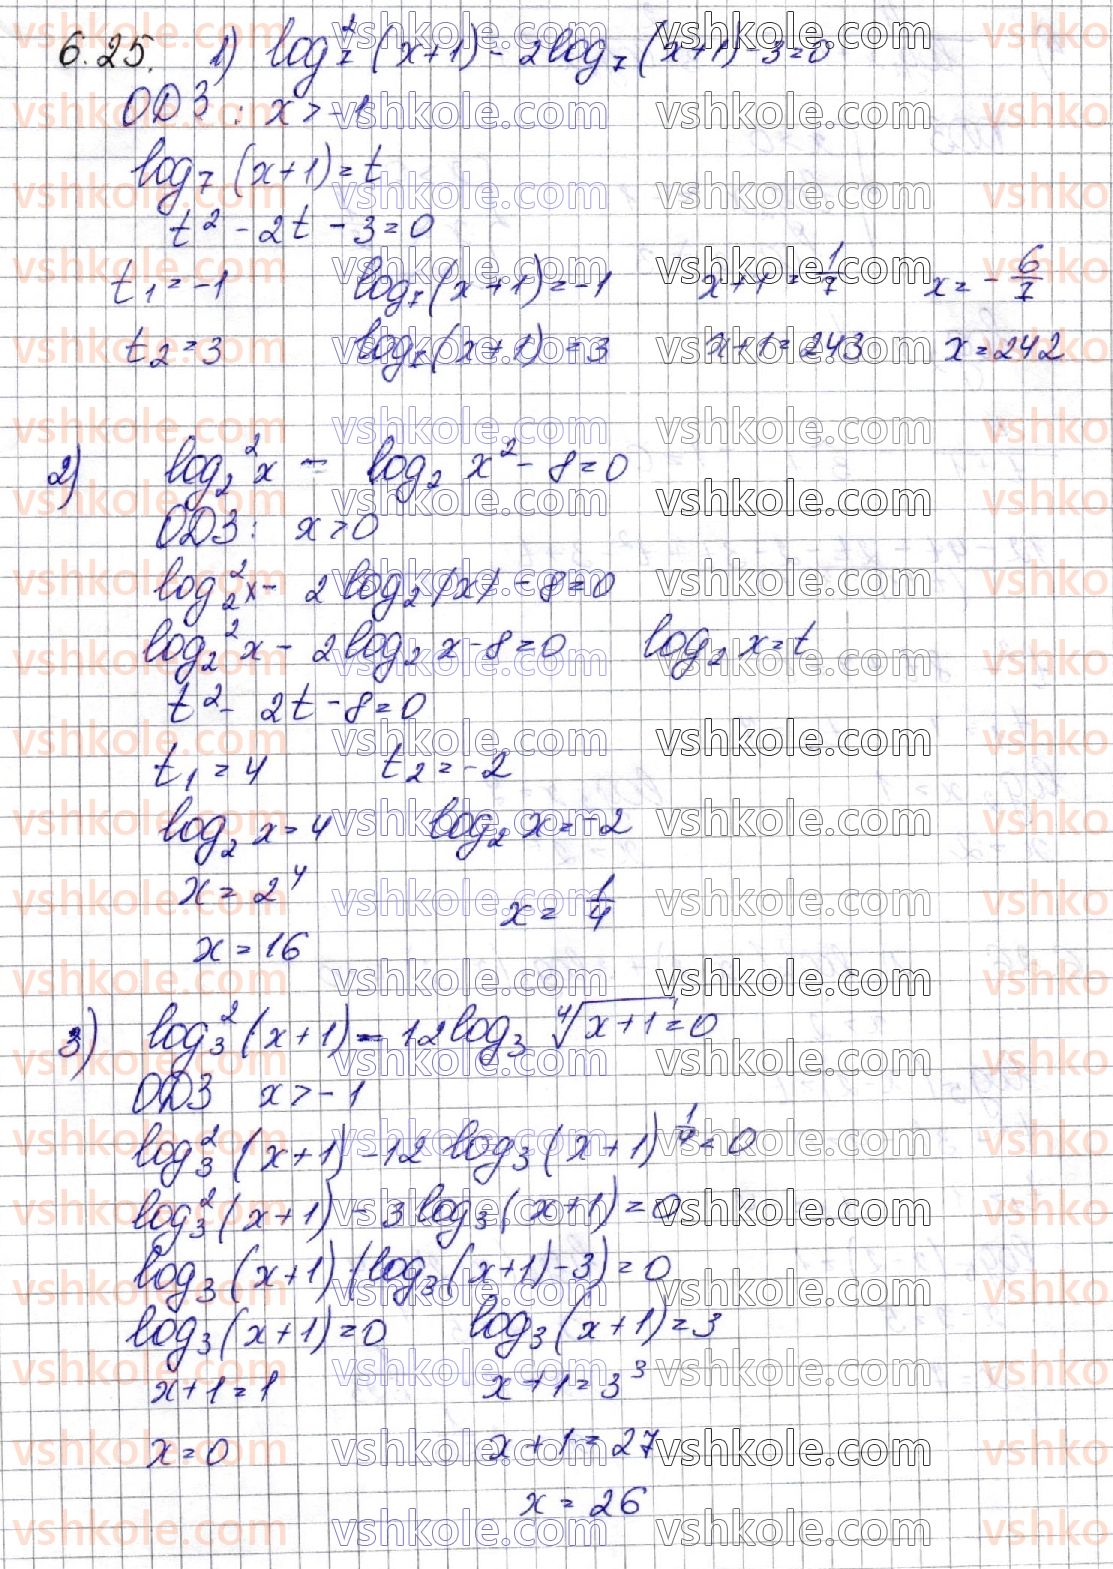 6.25. 1) log₇²(x+1) - 2log₇(x+1) - 3 = 0
ОДЗ: x > -1
log₇(x+1) = t
t² - 2t - 3 = 0
t₁ = -1 log₇(x+1) = -1 x+1 = 1/7 x = -6/7
t₂ = 3 log₇(x+1) = 3 x+1 = 243 x = 242
2) log₂²x - log₂x² - 8 = 0
ОДЗ: x > 0
log₂²x - 2log₂|x| - 8 = 0
log₂²x - 2log₂x - 8 = 0 log₂x = t
t² - 2t - 8 = 0
t₁ = 4 t₂ = -2
log₂x = 4 log₂x = -2
x = 2⁴ x = 1/4
x = 16
3) log₃²(x+1) - 12log₃ ⁴√(x+1) = 0
ОДЗ x > -1
log₃²(x+1) - 12log₃(x+1)^(1/4) = 0
log₃²(x+1) - 3log₃(x+1) = 0
log₃(x+1)(log₃(x+1) - 3) = 0
log₃(x+1) = 0 log₃(x+1) = 3
x+1 = 1 x+1 = 3³
x = 0 x+1 = 27
x = 26
vshkole.com